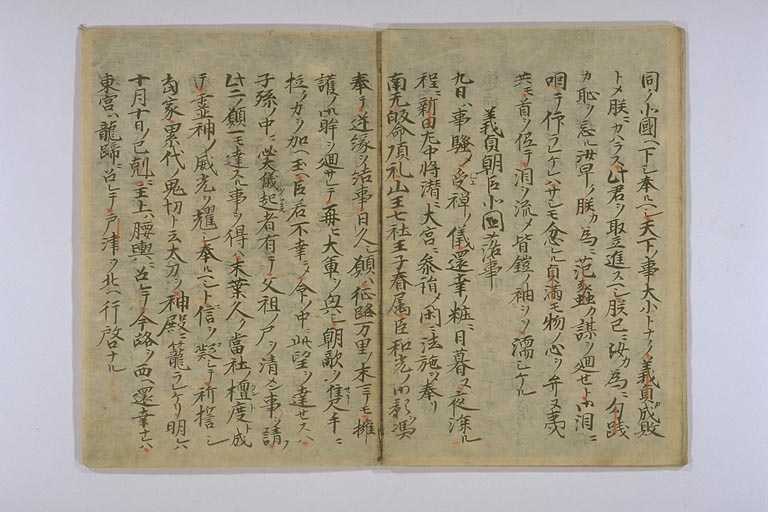 同ノ小國ヘ下シ奉ルヘシ天下ノ事大小トナクノ義貞成敗
トメ朕ニカヘラス此君ヲ取立進スヘシ朕已ニ汝カ為ニ勾践
カ恥ヲ忘ル汝早ク朕カ為ニ范蠡カ謀ヲ廻セト御泪ニ
咽テ作ラレケレハサシモ忿レル貞満モ物ノ心ヲ弁ヌ夷
共モ首ヲ低テ泪ヲ流メ皆鎧ノ袖ヲソ濡シケル
義貞朝臣小國落事
九日ハ事騒ク受禅ノ儀還幸ノ粧ニ日暮ヌ夜深ル
程ニ新田左中将潜ニ大宮ニ参詣メ閑ニ法施ヲ奉リ
南无皈命頂礼山王七社王子眷属臣和光ノ御影ヲ憑
奉テ逆縁ヲ結事日久シ願ハ征路万里ノ末ニテモ擁
護ノ御眸ヲ廻サレテ再ヒ大軍ヲ興シ朝敵ヲ退ル手ニ
力ヲ加ヘ玉ヘ臣若不幸ニメ命ノ中ニ此望ヲ達セスハ
子孫ノ中ニ必大儀起者有テ父祖ノ尸ヲ清メン事ヲ請フ
此二ノ願一モ達スル事ヲ得ハ末葉久ク當社ノ檀度ト成
テ霊神ノ威光ヲ耀シ奉ルヘシト信ヲ発テ祈誓シ
當家累代ノ鬼切ト云太刀ヲ神殿ニ籠ラレケリ明ハ
十月十日ノ巳剋ニ主上ハ腰輿ニ召レテ今路ヲ西ヘ還幸ナレハ
東宮ハ龍蹄ニ召レテ戸津ヲ北ヘ行啓ナル